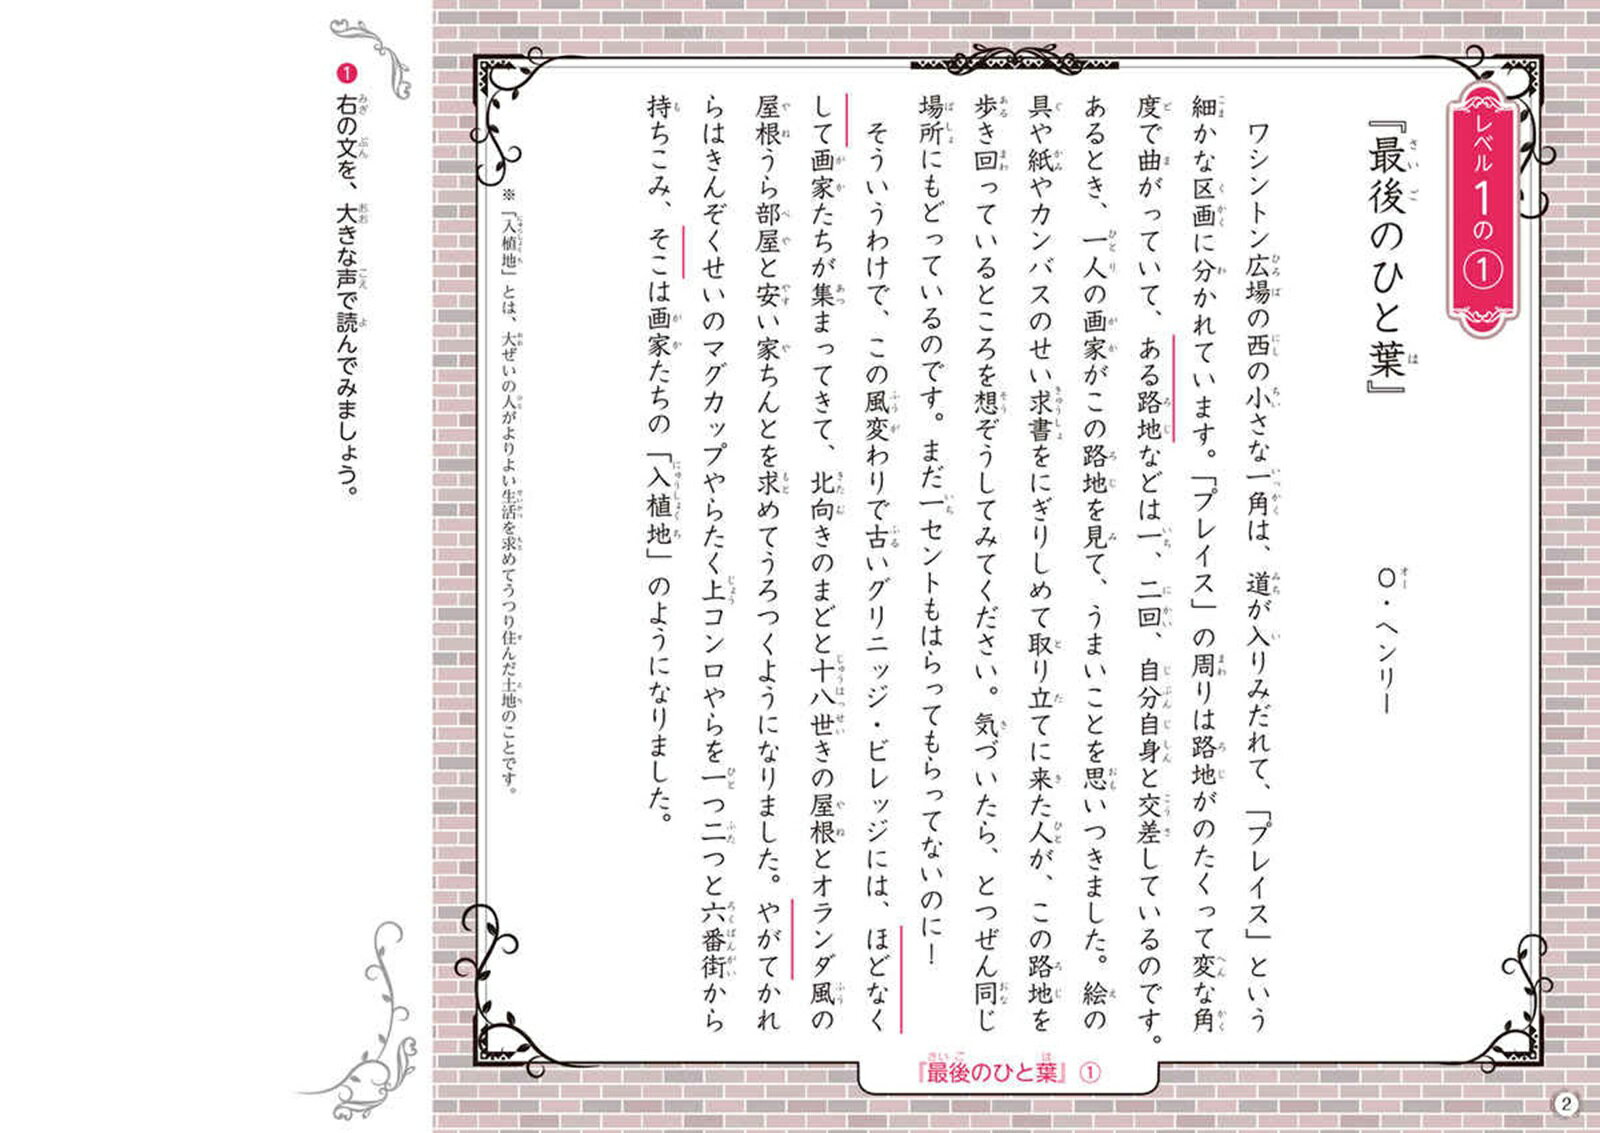 レベル1の①
『最後のひと葉』
O・ヘンリー
ワシントン広場の西の小さな一角は、道が入りみだれて、「プレイス」という
細かな区画に分かれています。「プレイス」の周りは路地がのたくって変な角
度で曲がっていて、ある路地などは一、二回、自分自身と交差しているのです。
あるとき、一人の画家がこの路地を見て、うまいことを思いつきました。絵の
具や紙やカンバスのせい求書をにぎりしめて取り立てに来た人が、この路地を
歩き回っているところを想ぞうしてみてください。気づいたら、とつぜん同じ
場所にもどっているのです。まだ一セントもはらってもらってないのに！
そういうわけで、この風変わりで古いグリニッジ・ビレッジには、ほどなく
して画家たちが集まってきて、北向きのまどと十八世きの屋根とオランダ風の
屋根うら部屋と安い家ちんとを求めてうろつくようになりました。やがてかれ
らはきんぞくせいのマグカップやらたく上コンロやらを一つ二つと六番街から
持ちこみ、そこは画家たちの「入植地」のようになりました。
※「入植地」とは、大ぜいの人がよりよい生活を求めてうつり住んだ土地のことです。
『最後のひと葉』①
❶右の文を、大きな声で読んでみましょう。
2